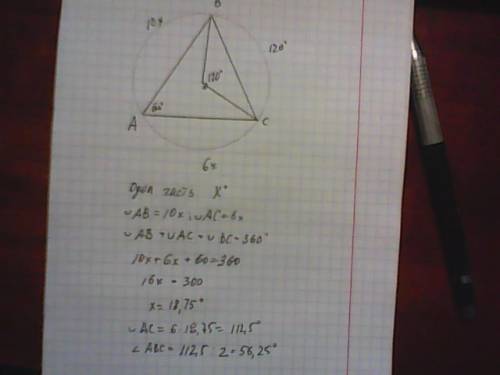 B
10x
120°
120°
60°
A
C
6x
Одна часть X°
◡AB = 10x; ◡AC = 6x
◡AB + ◡AC + ◡BC = 360°
10x + 6x + 60 = 360
16x = 300
x = 18,75°
◡AC = 6 · 18,75 = 112,5°
∠ABC = 112,5 : 2 = 56,25°